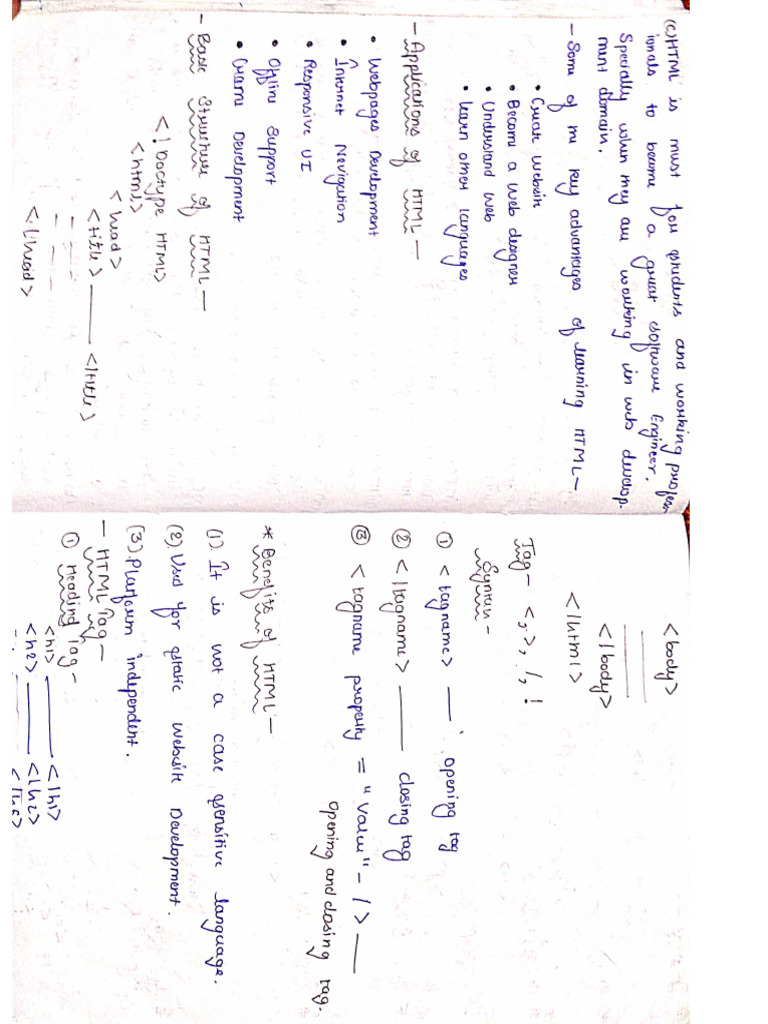 (c) HTML is must for students and working profess
ionals to become a great software Engineer.
Specially when they are working in web develop.
ment domain.
- Some of the key advantages of learning HTML -
• Create Website
• Become a web designer
• Understand web
• Learn other languages
- Applications of HTML -
• Webpages Development
• Internet Navigation
• Responsive UI
• Offline Support
• Game Development
- Basic Structure of HTML -
<! Doctype HTML>
<html>
<head>
<title> </title>
</head>
<body>
</body>
</html>
Tag - <, >, /, !
Syntax -
① <tagname> opening tag
② </tagname> closing tag
③ <tagname property = "value" - / >
opening and closing tag.
* Benefits of HTML -
(1). It is not a case sensitive language.
(2). Used for static website Development.
(3). Platform independent.
- HTML Tag -
① Heading Tag -
<h1> </h1>
<h2> </h2>